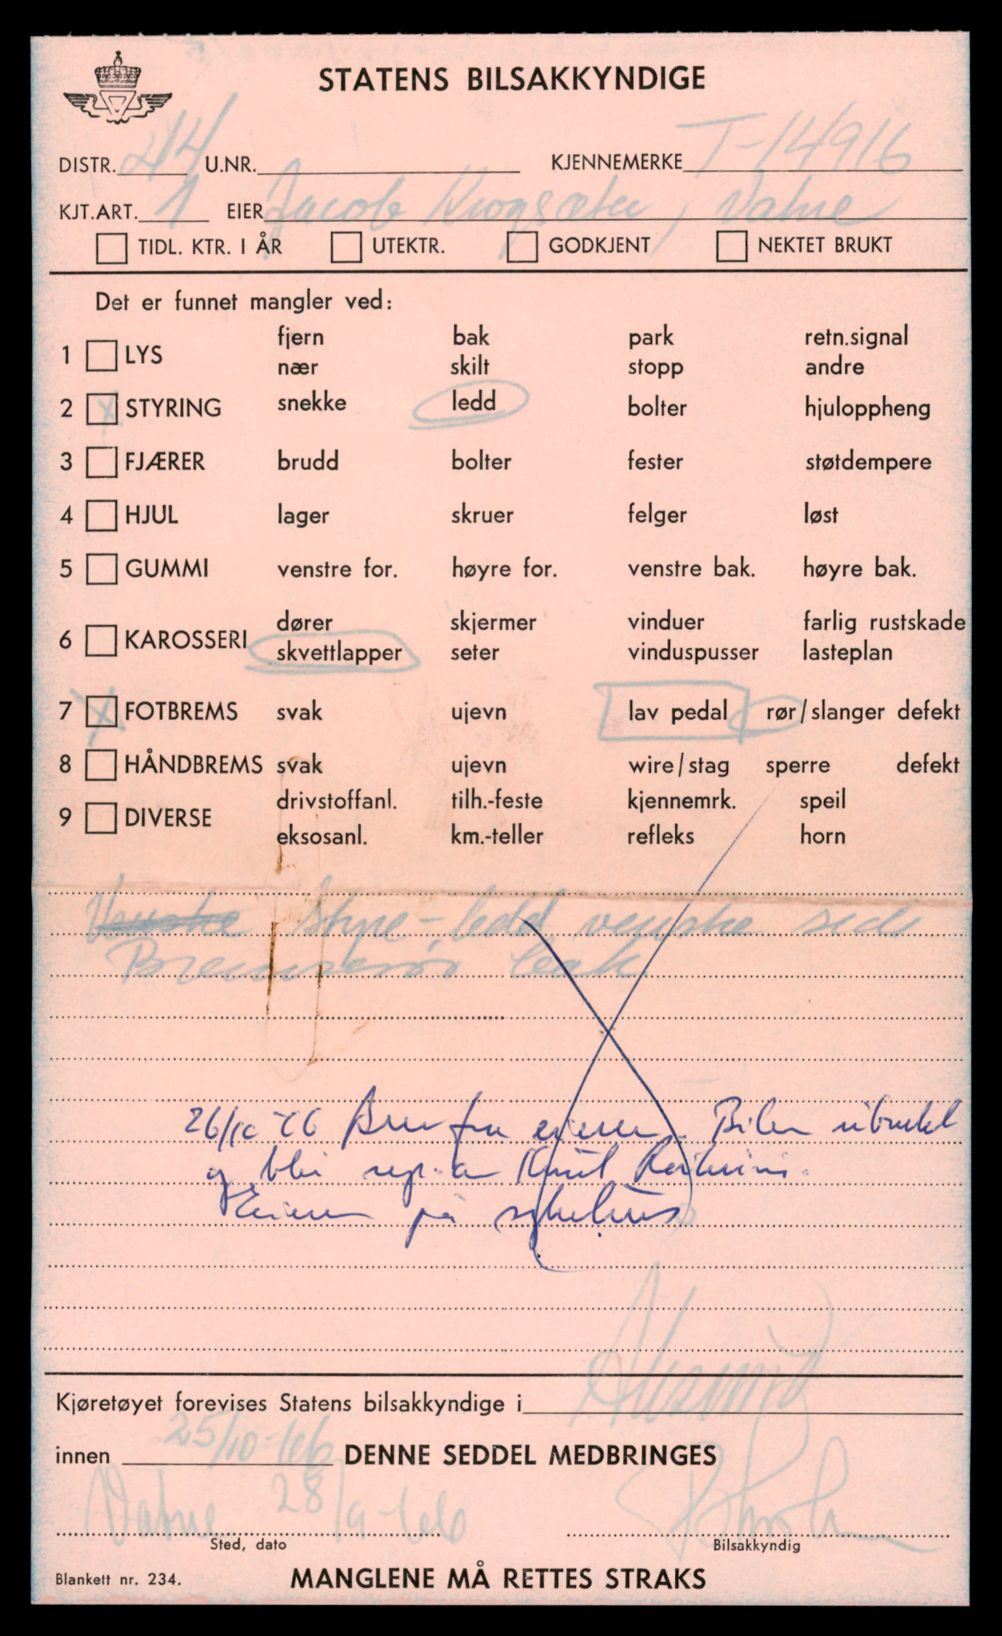 STATENS BILSAKKYNDIGE
DISTR. 44 U.NR. KJENNEMERKE T-14916
KJT.ART. 1 EIER Jacob Krogsæter, Vatne
TIDL. KTR. I ÅR UTEKTR. GODKJENT NEKTET BRUKT
Det er funnet mangler ved:
fjern bak park retn.signal
1 LYS
nær skilt stopp andre
2 x STYRING snekke ledd bolter hjuloppheng
3 FJÆRER brudd bolter fester støtdempere
4 HJUL lager skruer felger løst
5 GUMMI venstre for. høyre for. venstre bak. høyre bak.
dører skjermer vinduer farlig rustskade
6 KAROSSERI
skvettlapper seter vinduspusser lasteplan
7 x FOTBREMS svak ujevn lav pedal rør/slanger defekt
8 HÅNDBREMS svak ujevn wire/stag sperre defekt
drivstoffanl. tilh.-feste kjennemrk. speil
9 DIVERSE
eksosanl. km.-teller refleks horn
Venstre Styre-ledd venstre side
Bremserør lekk
26/10-66 Brev fra eieren. Bilen ubrukt
og blir rep. av Knut
Eieren på sykehus
Kjøretøyet forevises Statens bilsakkyndige i Ålesund
innen 25/10-66 DENNE SEDDEL MEDBRINGES
Vatne 28/9-66
Sted, dato Bilsakkyndig
Blankett nr. 234. MANGLENE MÅ RETTES STRAKS